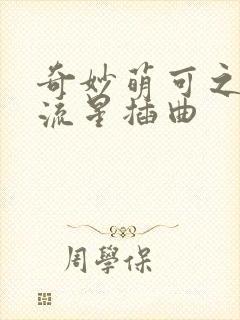 奇妙萌可之
流星插曲
周學保